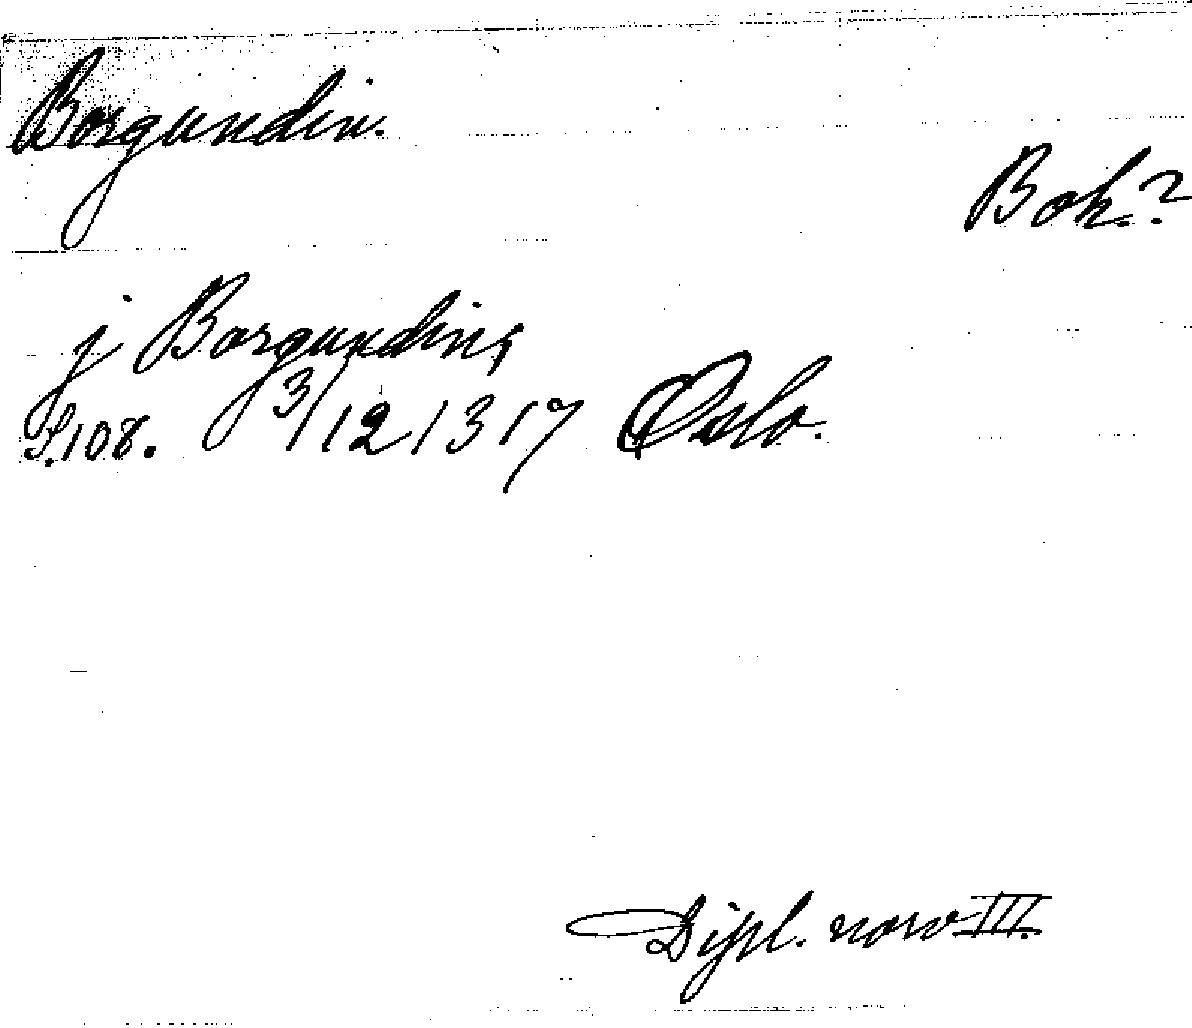 Borgundin.
Boh.?
j Borgundini,
S.108. 3/12 1317 Oslo.
Dipl. norv III.